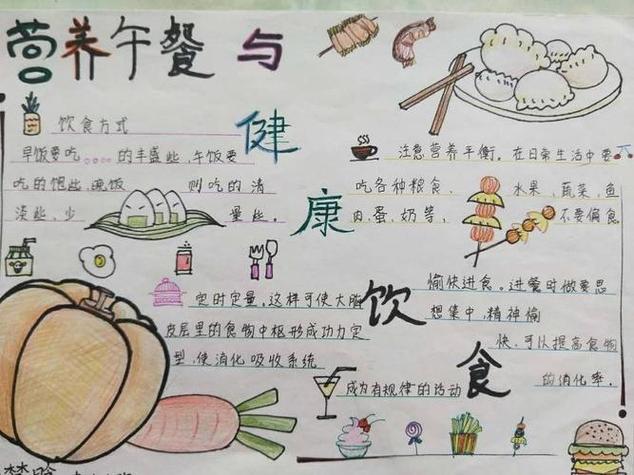 营养午餐与
健康饮食
饮食方式
早饭要吃 的丰盛些,午饭要
吃的饱些,晚饭 则吃的清
淡些,少 量些。
注意营养平衡。在日常生活中要
吃各种粮食、 水果、蔬菜、鱼
肉、蛋、奶等, 不要偏食
定时定量,这样可使大脑
皮层里的食物中枢形成功力定
型,使消化吸收系统
成为有规律的活动
愉快进食。进餐时做要思
想集中,精神愉
快,可以提高食物
的消化率。